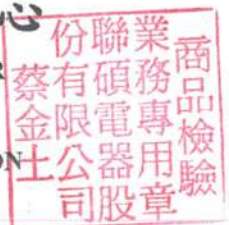 心
ON
商品檢驗
業務專用章
聯碩電器股
份有限公司
蔡金土